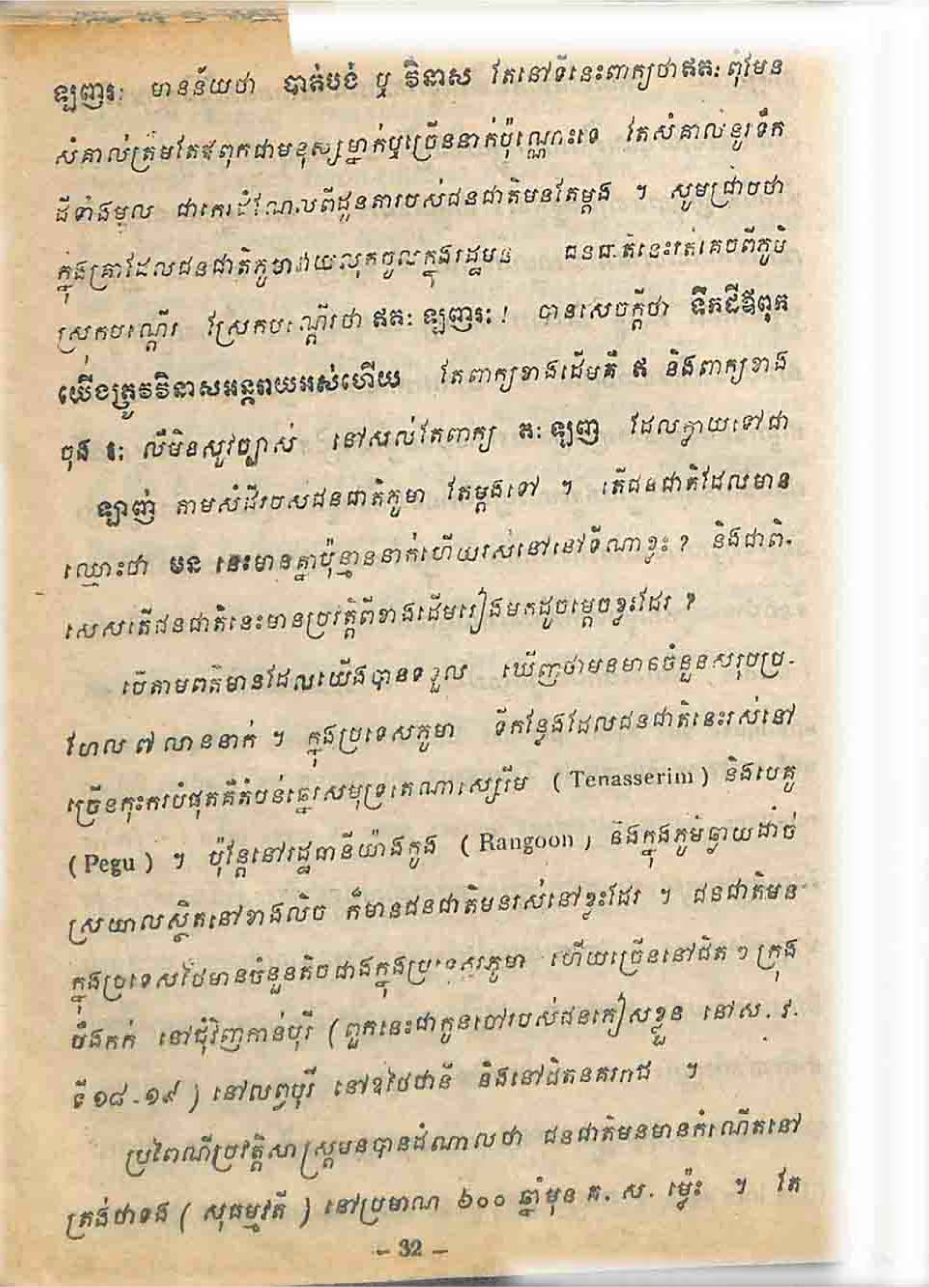 ឡញរ: មានន័យថា បាត់បង់ ឬ វិនាស តែនៅទីនេះពាក្យថាឥត: ពុំមែន
សំគាល់ត្រឹមតែឪពុកជាមនុស្សម្នាក់ឬច្រើននាក់ប៉ុណ្ណោះទេ តែសំគាល់នូវទឹក
ដីទាំងមូល ជាកេរដំណែលពីដូនតារបស់ជនជាតិមនតែម្តង ។ សូមជ្រាបថា
ក្នុងគ្រាដែលជនជាតិភូមាវាយលុកចូលក្នុងរដ្ឋមន ជនជាតិនេះរត់គេចពីភូមិ
ស្រែកបណ្តើរ វៃស្រែកបណ្តើរថា ឥត: ឡញរ: ! បានសេចក្តីថា ទឹកដីឪពុក
យើងត្រូវវិនាសអន្តរាយអស់ហើយ តែពាក្យខាងដើមគឺ ឥ និងពាក្យខាង
ចុង រ: លឺមិនសូវច្បាស់ នៅសល់តែពាក្យ ត: ឡញ ដែលក្លាយទៅជា
ឡាញ់ តាមសំដីរបស់ជនជាតិភូមា តែម្តងទៅ ។ តើជនជាតិដែលមាន
ឈ្មោះថា មន នេះមានគ្នាប៉ុន្មាននាក់ហើយរស់នៅនៅទីណាខ្លះ ? និងជាពិ-
សេសតើជនជាតិនេះមានប្រវត្តិពីខាងដើមរៀងមកដូចម្តេចខ្លះដែរ ?
បើតាមពត៌មានដែលយើងបានទទួល ឃើញថាមនមានចំនួនសរុបប្រ-
ហែល ៧ លាននាក់ ។ ក្នុងប្រទេសភូមា ទីកន្លែងដែលជនជាតិនេះរស់នៅ
ច្រើនកុះករបំផុតគឺតំបន់ឆ្នេរសមុទ្រតេណាស្សេរីម ( Tenasserim ) និងបេគូ
( Pegu ) ។ ប៉ុន្តែនៅរដ្ឋធានីយ៉ាងកូង ( Rangoon ) និងក្នុងភូមិឆ្ងាយដាច់
ស្រយាលស្ថិតនៅខាងលិច ក៏មានជនជាតិមនរស់នៅខ្លះដែរ ។ ជនជាតិមន
ក្នុងប្រទេសថៃមានចំនួនតិចជាងក្នុងប្រទេសភូមា ហើយច្រើននៅជិត ៗ ក្រុង
បឹងកក់ នៅជុំវិញកាន់បុរី ( ពួកនេះជាកូនចៅរបស់ជនភៀសខ្លួន នៅស. វ.
ទី១៨-១៩ ) នៅលព្វបុរី នៅឧថៃថានី និងនៅជិតនគររាជ ។
ប្រពៃណីប្រវត្តិសាស្ត្រមនបានដំណាលថា ជនជាតិមនមានកំណើតនៅ
ត្រង់ថាទង ( សុធម្មវតី ) នៅប្រមាណ ៦០០ ឆ្នាំមុន គ. ស. ម៉្លេះ ។ តែ
- 32 -